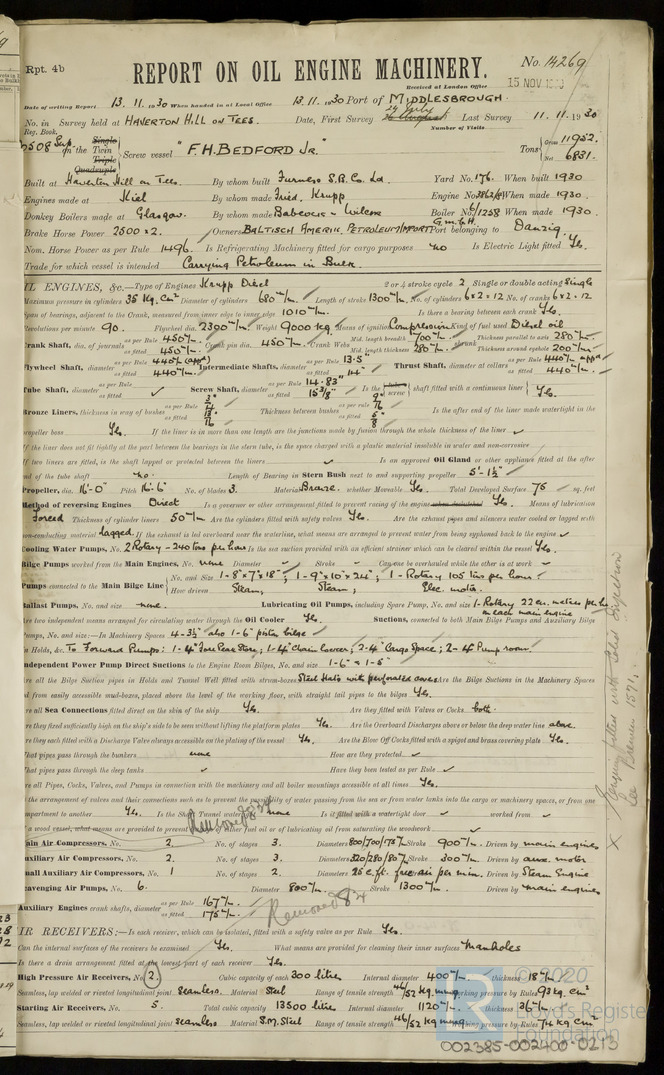 Rpt. 4b
REPORT ON OIL ENGINE MACHINERY.
No. 14269
Received at London Office 15 NOV
Date of writing Report 13.11.1930 When handed in at Local Office 13.11.1930 Port of MIDDLESBROUGH.
No. in Survey held at HAVERTON HILL ON TEES. Date, First Survey Last Survey 11.11.1930
Reg. Book. Number of Visits
on the Single Twin Triple Quadruple Screw vessel "F.H. BEDFORD Jr." Tons Gross 11952. Net 6831.
Built at Haverton Hill on Tees. By whom built Furness S.B. Co. Ld. Yard No. 176. When built 1930
Engines made at Kiel By whom made Fried. Krupp Engine No. When made 1930.
Donkey Boilers made at Glasgow. By whom made Babcock & Wilcox Boiler No. 6/1258 When made 1930.
Brake Horse Power 2500 x 2. Owners BALTISCH AMERIK. PETROLEUM IMPORT G.m.b.H. Port belonging to Danzig.
Nom. Horse Power as per Rule 1496. Is Refrigerating Machinery fitted for cargo purposes no Is Electric Light fitted Yes.
Trade for which vessel is intended Carrying Petroleum in Bulk.
OIL ENGINES, &c.—Type of Engines Krupp Diesel 2 or 4 stroke cycle 2 Single or double acting Single
Maximum pressure in cylinders 35 Kg. cm² Diameter of cylinders 680 m/m. Length of stroke 1300 m/m. No. of cylinders 6 x 2 = 12 No. of cranks 6 x 2 = 12
Span of bearings, adjacent to the Crank, measured from inner edge to inner edge 1010 m/m. Is there a bearing between each crank Yes.
Revolutions per minute 90. Flywheel dia. 2300 m/m. Weight 9000 kg. Means of ignition Compression Kind of fuel used Diesel oil
Crank Shaft, dia. of journals as per Rule 450 m/m as fitted 450 m/m. Crank pin dia. 450 m/m. Crank Webs Mid. length breadth 700 m/m Mid. length thickness 280 m/m. shrunk Thickness parallel to axis 280 m/m Thickness around eyehole 200 m/m
Flywheel Shaft, diameter as per Rule 440 m/m (app'd) as fitted 440 m/m. Intermediate Shafts, diameter as per Rule 13.5" as fitted 14" Thrust Shaft, diameter at collars as per Rule 440 m/m app'd as fitted 440 m/m.
Tube Shaft, diameter as per Rule as fitted ✓ Screw Shaft, diameter as per Rule 14.83" as fitted 15 3/8" Is the tube screw shaft fitted with a continuous liner Yes.
Bronze Liners, thickness in way of bushes as per Rule as fitted Thickness between bushes as per Rule as fitted Is the after end of the liner made watertight in the
propeller boss Yes. If the liner is in more than one length are the junctions made by fusion through the whole thickness of the liner ✓
If the liner does not fit tightly at the part between the bearings in the stern tube, is the space charged with a plastic material insoluble in water and non-corrosive
If two liners are fitted, is the shaft lapped or protected between the liners ✓ Is an approved Oil Gland or other appliance fitted at the after
end of the tube shaft no. Length of Bearing in Stern Bush next to and supporting propeller 5'-1½"
Propeller, dia. 16'-0" Pitch 16'-6" No. of blades 3. Material Bronze. whether Moveable Yes. Total Developed Surface 76 sq. feet
Method of reversing Engines Direct Is a governor or other arrangement fitted to prevent racing of the engine Yes. Means of lubrication
Forced Thickness of cylinder liners 50 m/m Are the cylinders fitted with safety valves Yes. Are the exhaust pipes and silencers water cooled or lagged with
non-conducting material lagged. If the exhaust is led overboard near the waterline, what means are arranged to prevent water from being syphoned back to the engine ✓
Cooling Water Pumps, No. 2 Rotary - 240 tons per hour Is the sea suction provided with an efficient strainer which can be cleared within the vessel Yes.
Bilge Pumps worked from the Main Engines, No. none Diameter Stroke Can one be overhauled while the other is at work
Pumps connected to the Main Bilge Line No. and Size 1 - 8" x 7" x 18"; 1 - 9" x 10" x 24"; 1 - Rotary 105 tons per hour
How driven Steam; Steam; Elec. motor.
Ballast Pumps, No. and size none. Lubricating Oil Pumps, including Spare Pump, No. and size 1 - Rotary 22 cu. metres per hr. in each main engine
Are two independent means arranged for circulating water through the Oil Cooler Yes. Suctions, connected to both Main Bilge Pumps and Auxiliary Bilge
Pumps, No. and size:—In Machinery Spaces 4 - 3½" also 1 - 6" piston bilge
In Holds, &c. To Forward Pumps: 1 - 4" Fore Peak Store; 1 - 4" Chain locker; 2 - 4" Cargo Space; 2 - 4" Pump room
Independent Power Pump Direct Suctions to the Engine Room Bilges, No. and size 1 - 6" & 1 - 5"
Are all the Bilge Suction pipes in Holds and Tunnel Well fitted with strum-boxes Are the Bilge Suctions in the Machinery Spaces
led from easily accessible mud-boxes, placed above the level of the working floor, with straight tail pipes to the bilges Yes.
Are all Sea Connections fitted direct on the skin of the ship Yes. Are they fitted with Valves or Cocks both.
Are they fixed sufficiently high on the ship's side to be seen without lifting the platform plates Yes. Are the Overboard Discharges above or below the deep water line above.
Are they each fitted with a Discharge Valve always accessible on the plating of the vessel Yes. Are the Blow Off Cocks fitted with a spigot and brass covering plate Yes.
What pipes pass through the bunkers none How are they protected ✓
What pipes pass through the deep tanks ✓ Have they been tested as per Rule ✓
Are all Pipes, Cocks, Valves, and Pumps in connection with the machinery and all boiler mountings accessible at all times Yes.
Is the arrangement of valves and their connections such as to prevent the possibility of water passing from the sea or from water tanks into the cargo or machinery spaces, or from one
compartment to another Yes. Is the Shaft Tunnel watertight none Is it fitted with a watertight door ✓ worked from ✓
If a wood vessel, what means are provided to prevent leakage of either fuel oil or of lubricating oil from saturating the woodwork
Main Air Compressors, No. 2. No. of stages 3. Diameters 800/700/175 m/m Stroke 900 m/m. Driven by main engines
Auxiliary Air Compressors, No. 2. No. of stages 3. Diameters 320/280/80 m/m Stroke 300 m/m. Driven by aux. motor
Small Auxiliary Air Compressors, No. 1 No. of stages 2. Diameters 25 c.ft. free air per min. Driven by Steam Engine
Scavenging Air Pumps, No. 6. Diameter 800 m/m. Stroke 1300 m/m. Driven by main engines
Auxiliary Engines crank shafts, diameter as per Rule 167 m/m. as fitted 175 m/m.
Removed 8.34
AIR RECEIVERS:—Is each receiver, which can be isolated, fitted with a safety valve as per Rule Yes.
Can the internal surfaces of the receivers be examined Yes. What means are provided for cleaning their inner surfaces Manholes
Is there a drain arrangement fitted at the lowest part of each receiver Yes.
High Pressure Air Receivers, No. 2. Cubic capacity of each 300 litres Internal diameter 400 m/m. thickness 18 m/m
Seamless, lap welded or riveted longitudinal joint seamless. Material Steel Range of tensile strength 46/52 kg. mm² Working pressure by Rules 93 kg. cm²
Starting Air Receivers, No. 5. Total cubic capacity 13500 litres Internal diameter 1120 m/m. thickness 36 m/m
Seamless, lap welded or riveted longitudinal joint seamless Material S.M. Steel Range of tensile strength 46/52 kg. mm² Working pressure by Rules 74 kg cm²
© 2020
Lloyd's Register
Foundation
002385-002400-0213